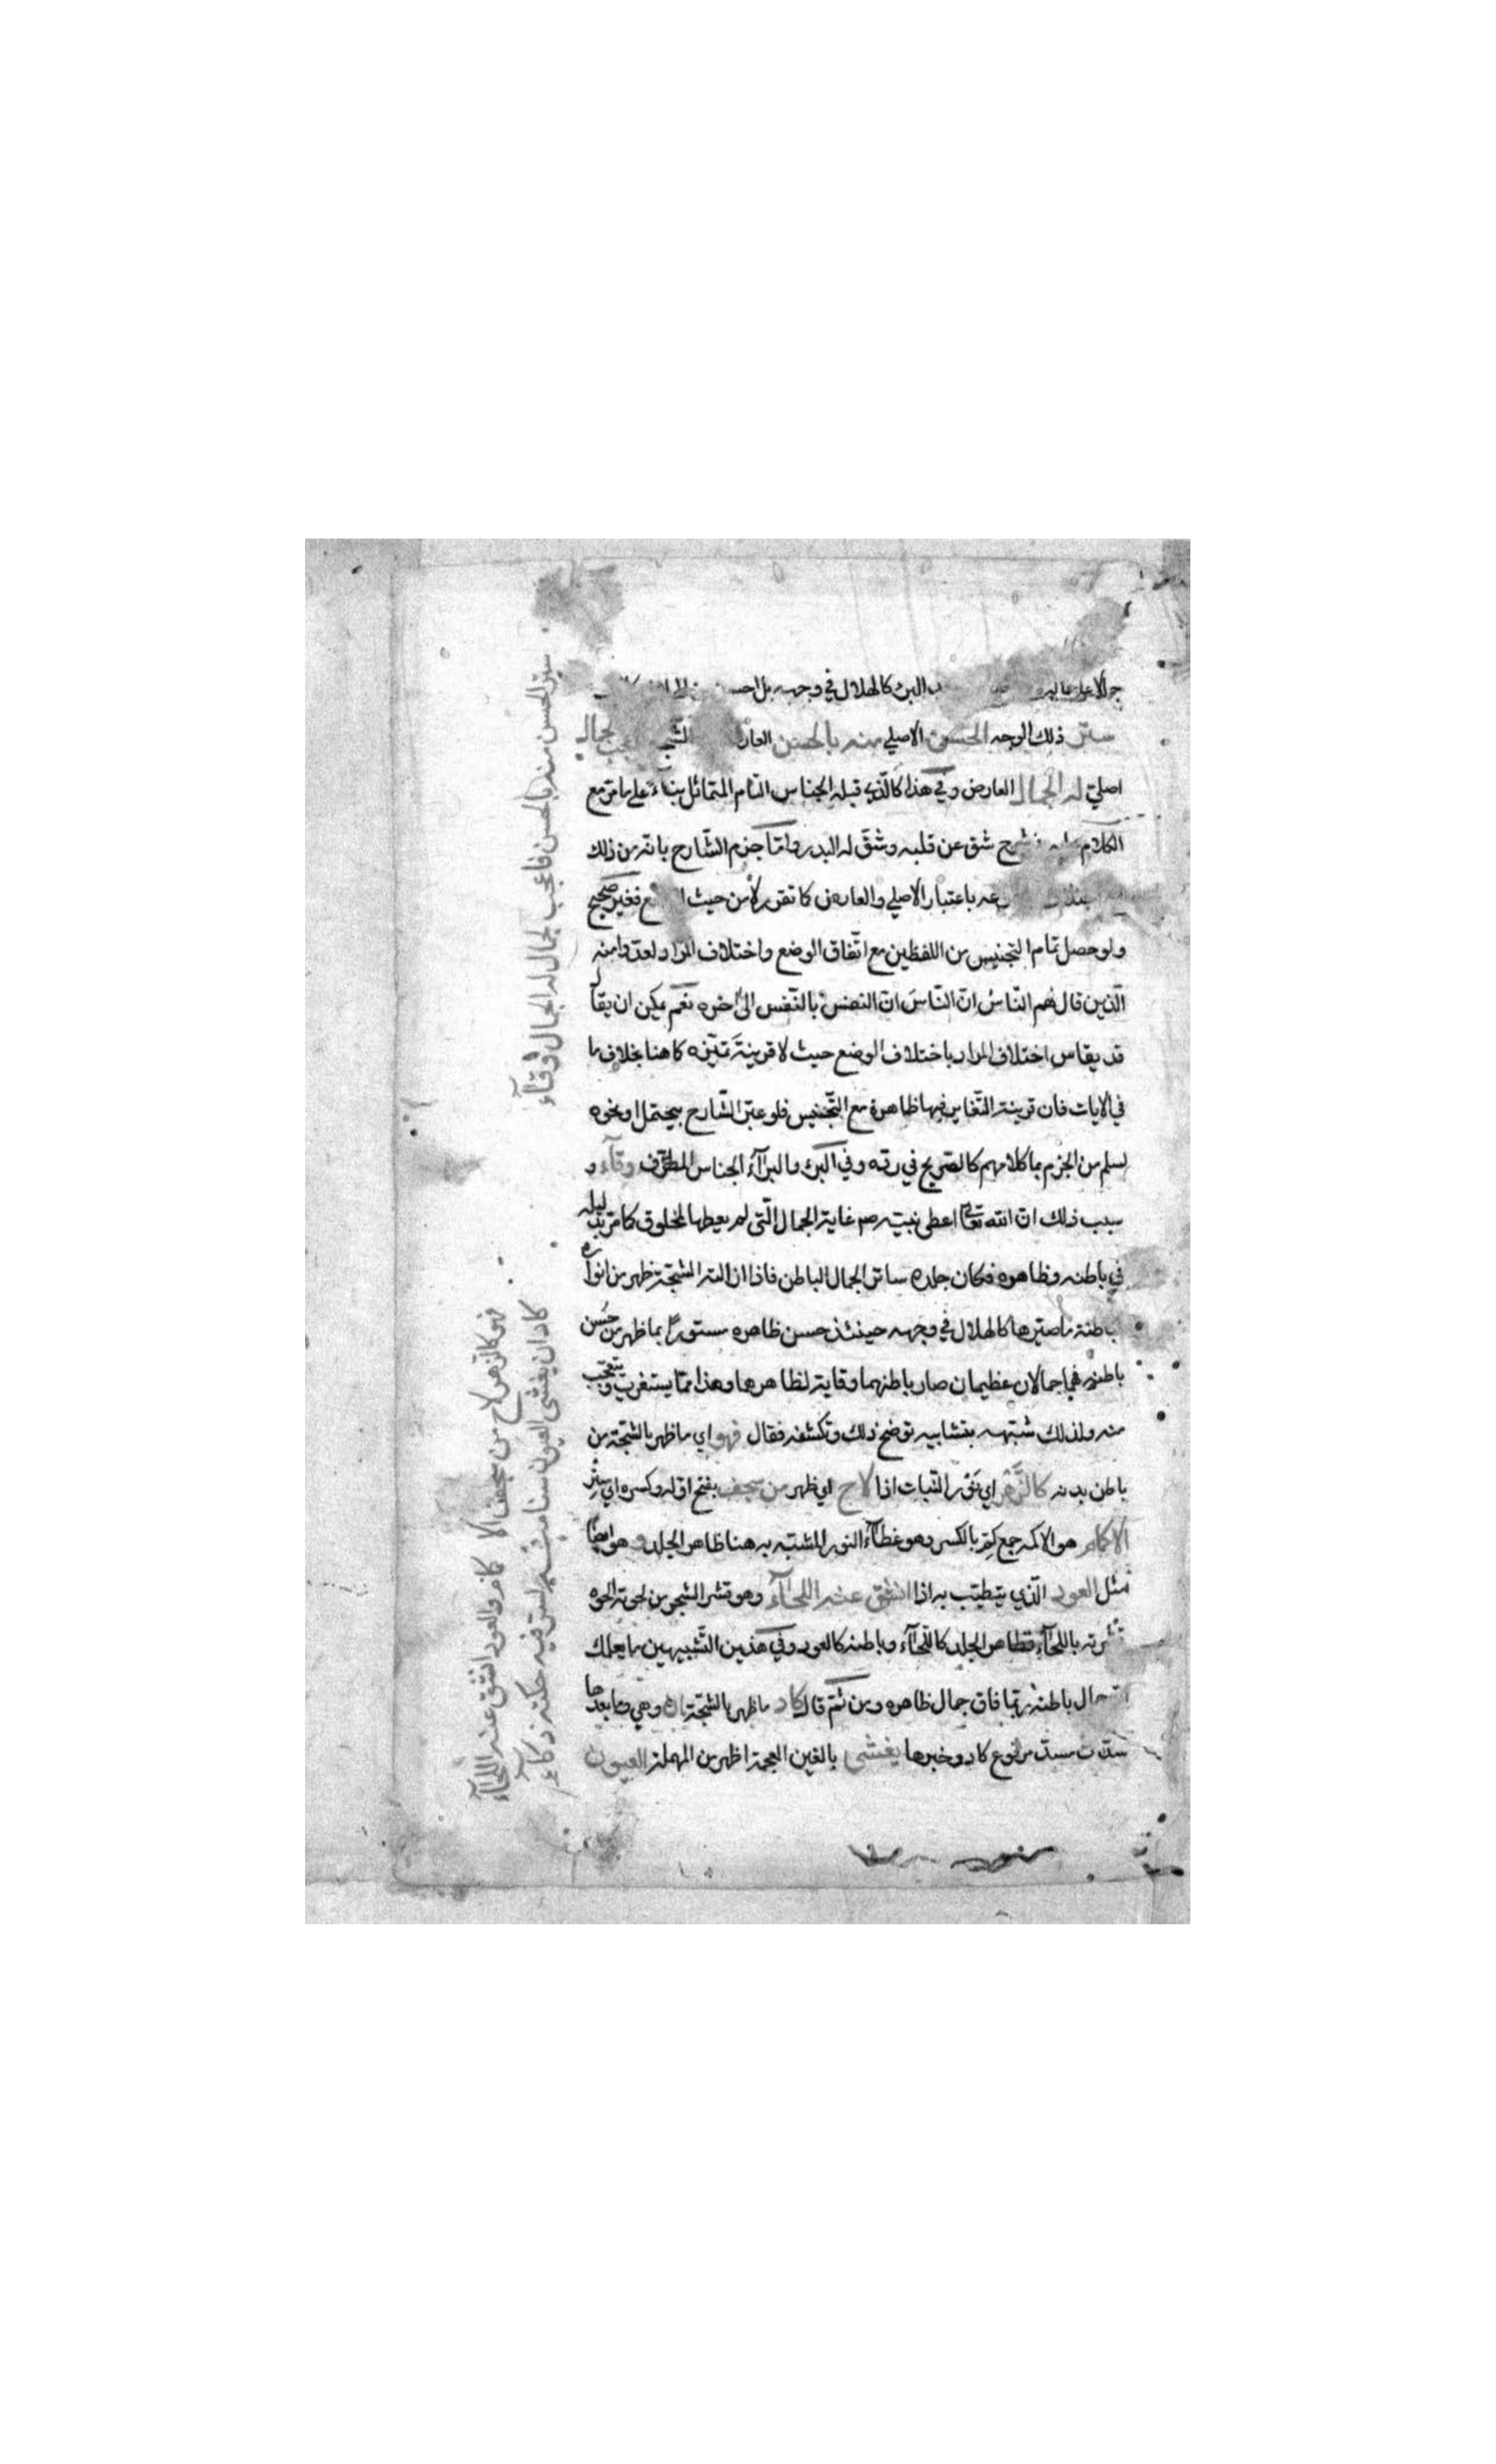 البرء كالهلال في وجهه بل احسن
ستر ذلك الوجه الحسن الاصلي منه بالحسن لجمال
اصليّ له الجمال العارض وفي هذا كالّذي قبله الجناس التام المتماثل بناء على ما مرّ مع
الكلام شق عن قلبه وشقّ له البدر وامّا جزم الشّارح بانّه من ذلك
باعتبار الاصلي والعارض كما تقرر لا من حيث فغير صحيح
ولو حصل تمام التجنيس من اللفظين مع اتّفاق الوضع واختلاف المراد لعدّوا منه
الّذين قال لهم النّاسُ انّ النّاسَ انّ النفسَ بالنّفس الى اخره نعم يمكن ان يقال
قد يقاس اختلاف المراد باختلاف الوضع حيث لا قرينة تميّزه كما هنا بخلاف ما
في الايات فان قرينة التّغاير فيها ظاهرة مع التّجنيس فلو عبّر الشّارح بيحتمل او نحوه
لسلم من الجزم بما كلامهم كالصّريح في ردّه وفي البرء والبرآء الجناس المطرّف وقآء و
سبب ذلك انّ الله تعالى اعطى نبيّه صم غاية الجمال الّتي لم يعطها لمخلوق كما مرّ بدليله
في باطنه وظاهره فكان جلده ساتر الجمال الباطن فاذا ازالته الشّجّة ظهر من انواره
الباطنة ما صيّرها كالهلال في وجهه حينئذ حسن ظاهره مستورًا بما ظهر من حُسن
باطنه فهما جمالان عظيمان صار باطنهما وقاية لظاهرها وهذا ممّا يستغرب ويتعجّب
منه ولذلك شبّهه بتشابيه توضح ذلك وتكشفه فقال فهو اي ما ظهر بالشّجّة من
باطن بدنه كالزّهر اي نَوْر النّبات اذا لاح اي ظهر من سجف بفتح اوّله وكسره اي سِتْر
الاكمام هو الاكمه جمع كِمّ بالكسر وهو غطآء النور المشبّه به هنا ظاهر الجلد و هو ايضًا
مثل العود الّذي يتطيّب به اذا انشق عنه اللحآء وهو قشر الشجر من لحوته الحوه
قشرته باللحآء فظاهر الجلد كاللّحآء وباطنه كالعود وفي هذين التّشبيهين ما يعلمك
انّ جمال باطنه ربّما فاق جمال ظاهره ومن ثمّ قال كاد ما ظهر بالشّجّة ان وهي وما بعدها
سدّت مسدّ مرفوع كاد وخبرها يغشى بالغين المعجمة اظهر من المهملة العيون
ستر الحسن منه بالحسن فاعجب لجمال له الجمال وقآء
فهو كالزهر لاح من سجف الاكمام والعود انشق عنه اللحآء
كاد ان يغشى العيون سنا منه لسر فيه حكته ذكآء